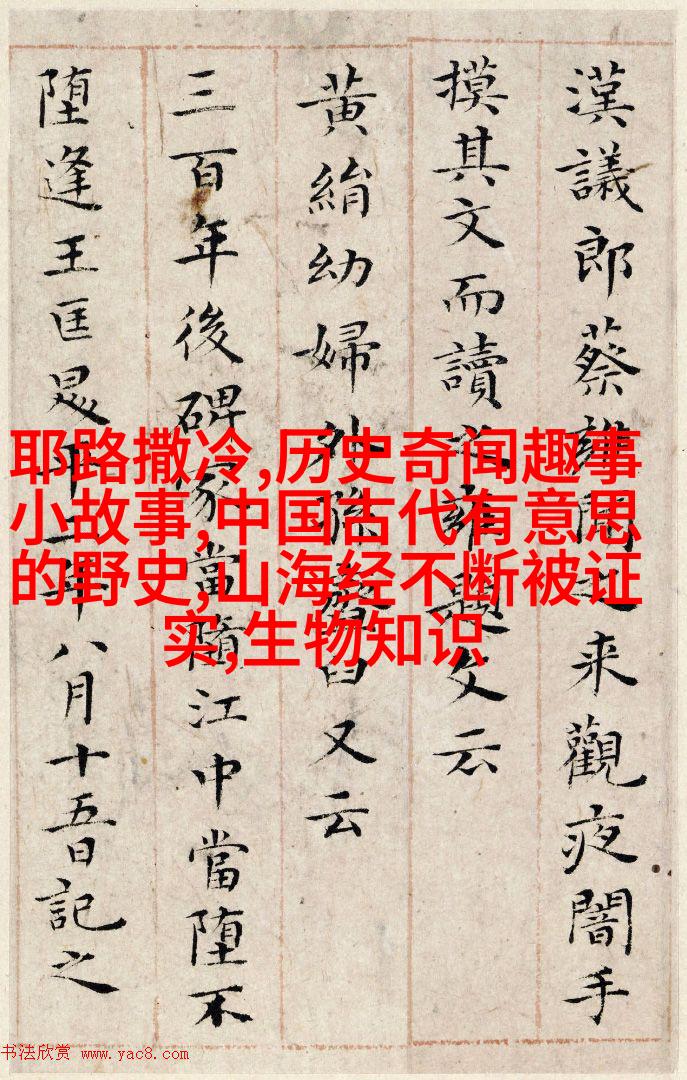 漢議郎蔡雍聞之来觀夜闇手
摸其文而讀之雍題文云
黄絹幼婦外孫臼又云
三百年後碑冢當堕江中當堕不
堕逢王匡年二年八月十五日記之
耶路撒冷,历史奇闻趣事
小故事,中国古代有意思
的野史,山海经不断被证
实,生物知识
书法欣赏 www.yac8.com